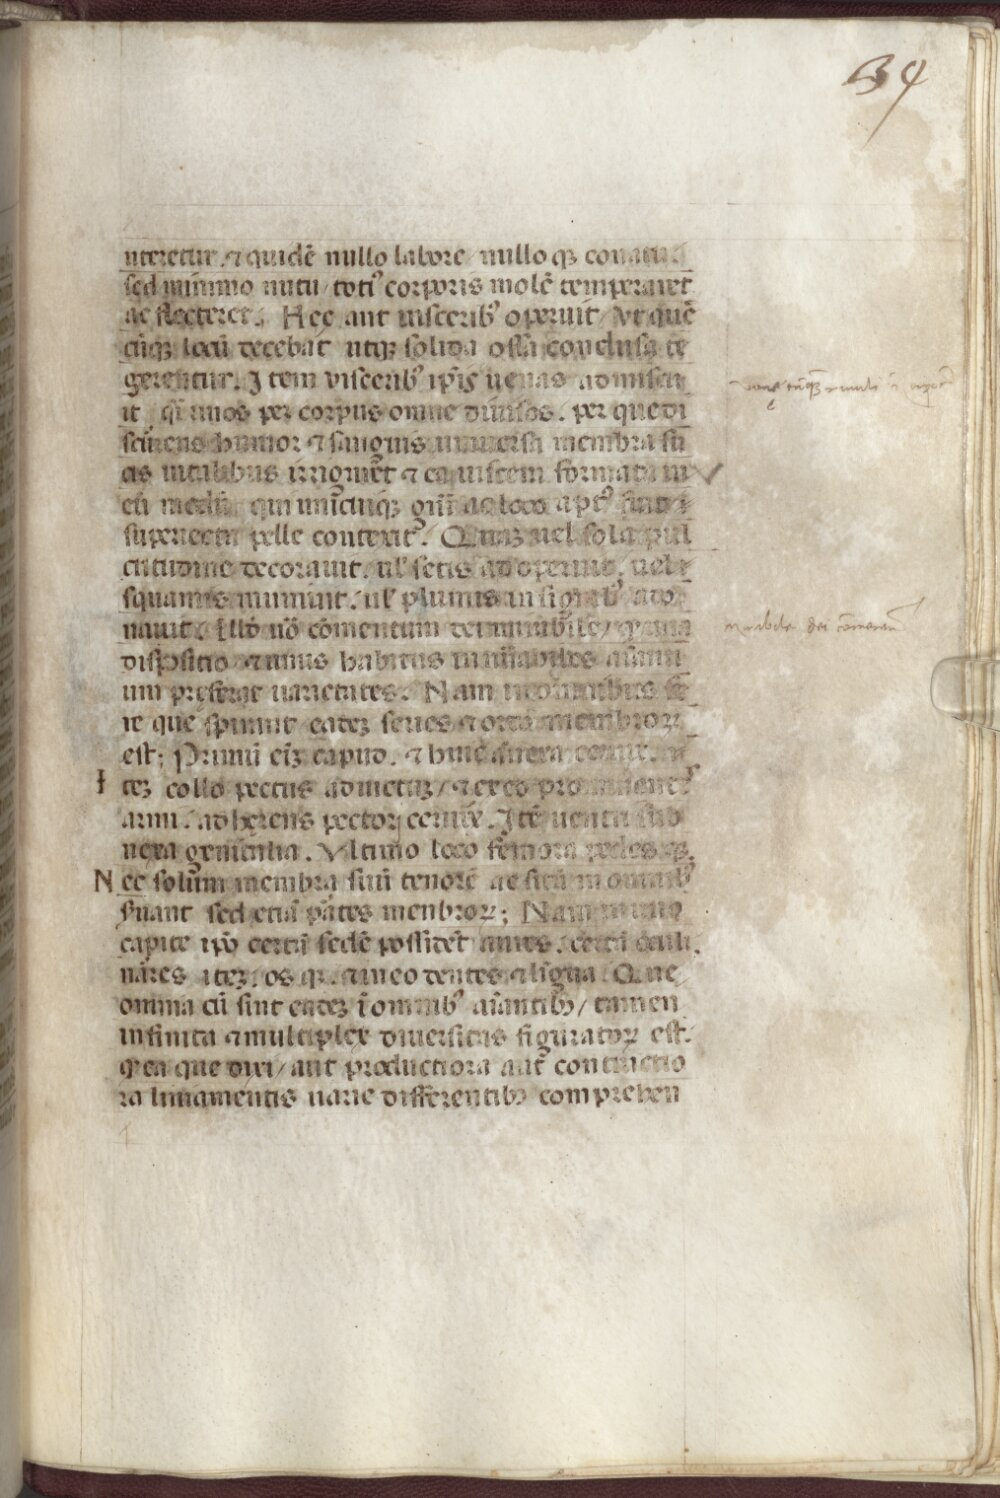 34
uteretur. ⁊ quidē nullo labore nullo qꝫ conatu
sed minimo nutu / totiꝰ corporis molē temperaret
ac flecteret. Hec aut uisceribꝰ operuit / vt quē
cūqꝫ locū decebat utqꝫ solida ossa conclusa te
gerentur. Item visceribꝰ ip̄is uenas admiscu
it q̄i riuos per corpus omne diuisos. per que di
scurrens humor ⁊ sanguis uniuersa membra su
cis uitalibus irrigaret ⁊ ea uiscera formata in
eū modū qui unicuiqꝫ gn̄i ac loco aptꝰ fuit
superiecta pelle contexit. Quaꝫ uel sola pul
critudine decorauit. ul̓ setis adoperuit. uel
squamis muniuit. ul̓ plumis insignibꝰ ador
nauit. Illđ uō cōmentum dei mirabile / qꝫ una
dispositio ⁊ unus habitus inn̄abiles aīanti
um preferat uarietates. Nam in omnibus fe
re que spirant eadeꝫ series ⁊ ordo membroꝝ
est; Primū eīꝫ capud. ⁊ huic annexa ceruix.
I teꝫ collo pectus adnectiꝫ / ⁊ ex eo prominentes
armi. adherens pectori ceruix. Itē uentri sub
nexa genitalia. Vltimo loco femora pedes qꝫ.
N ec solum membra suū tenorē ac sitū in omnibꝰ
seruant sed etiā partes menbroꝝ; Nam in uno
capite ip̄o certū sedē possident aures. certū oculi.
nares iteꝫ. os qꝫ. ⁊ in eo dentes ⁊ ligua. Que
omnia cū sint eadeꝫ ī omnibꝰ aīantibꝫ / tamen
infinita ⁊ multiplex diuersitas figuratoꝝ est.
q ea que dixi / aut productiora aut̄ contractio
ra liniamentis uarie differentibꝫ comprehen
mirabile dei cōmentū